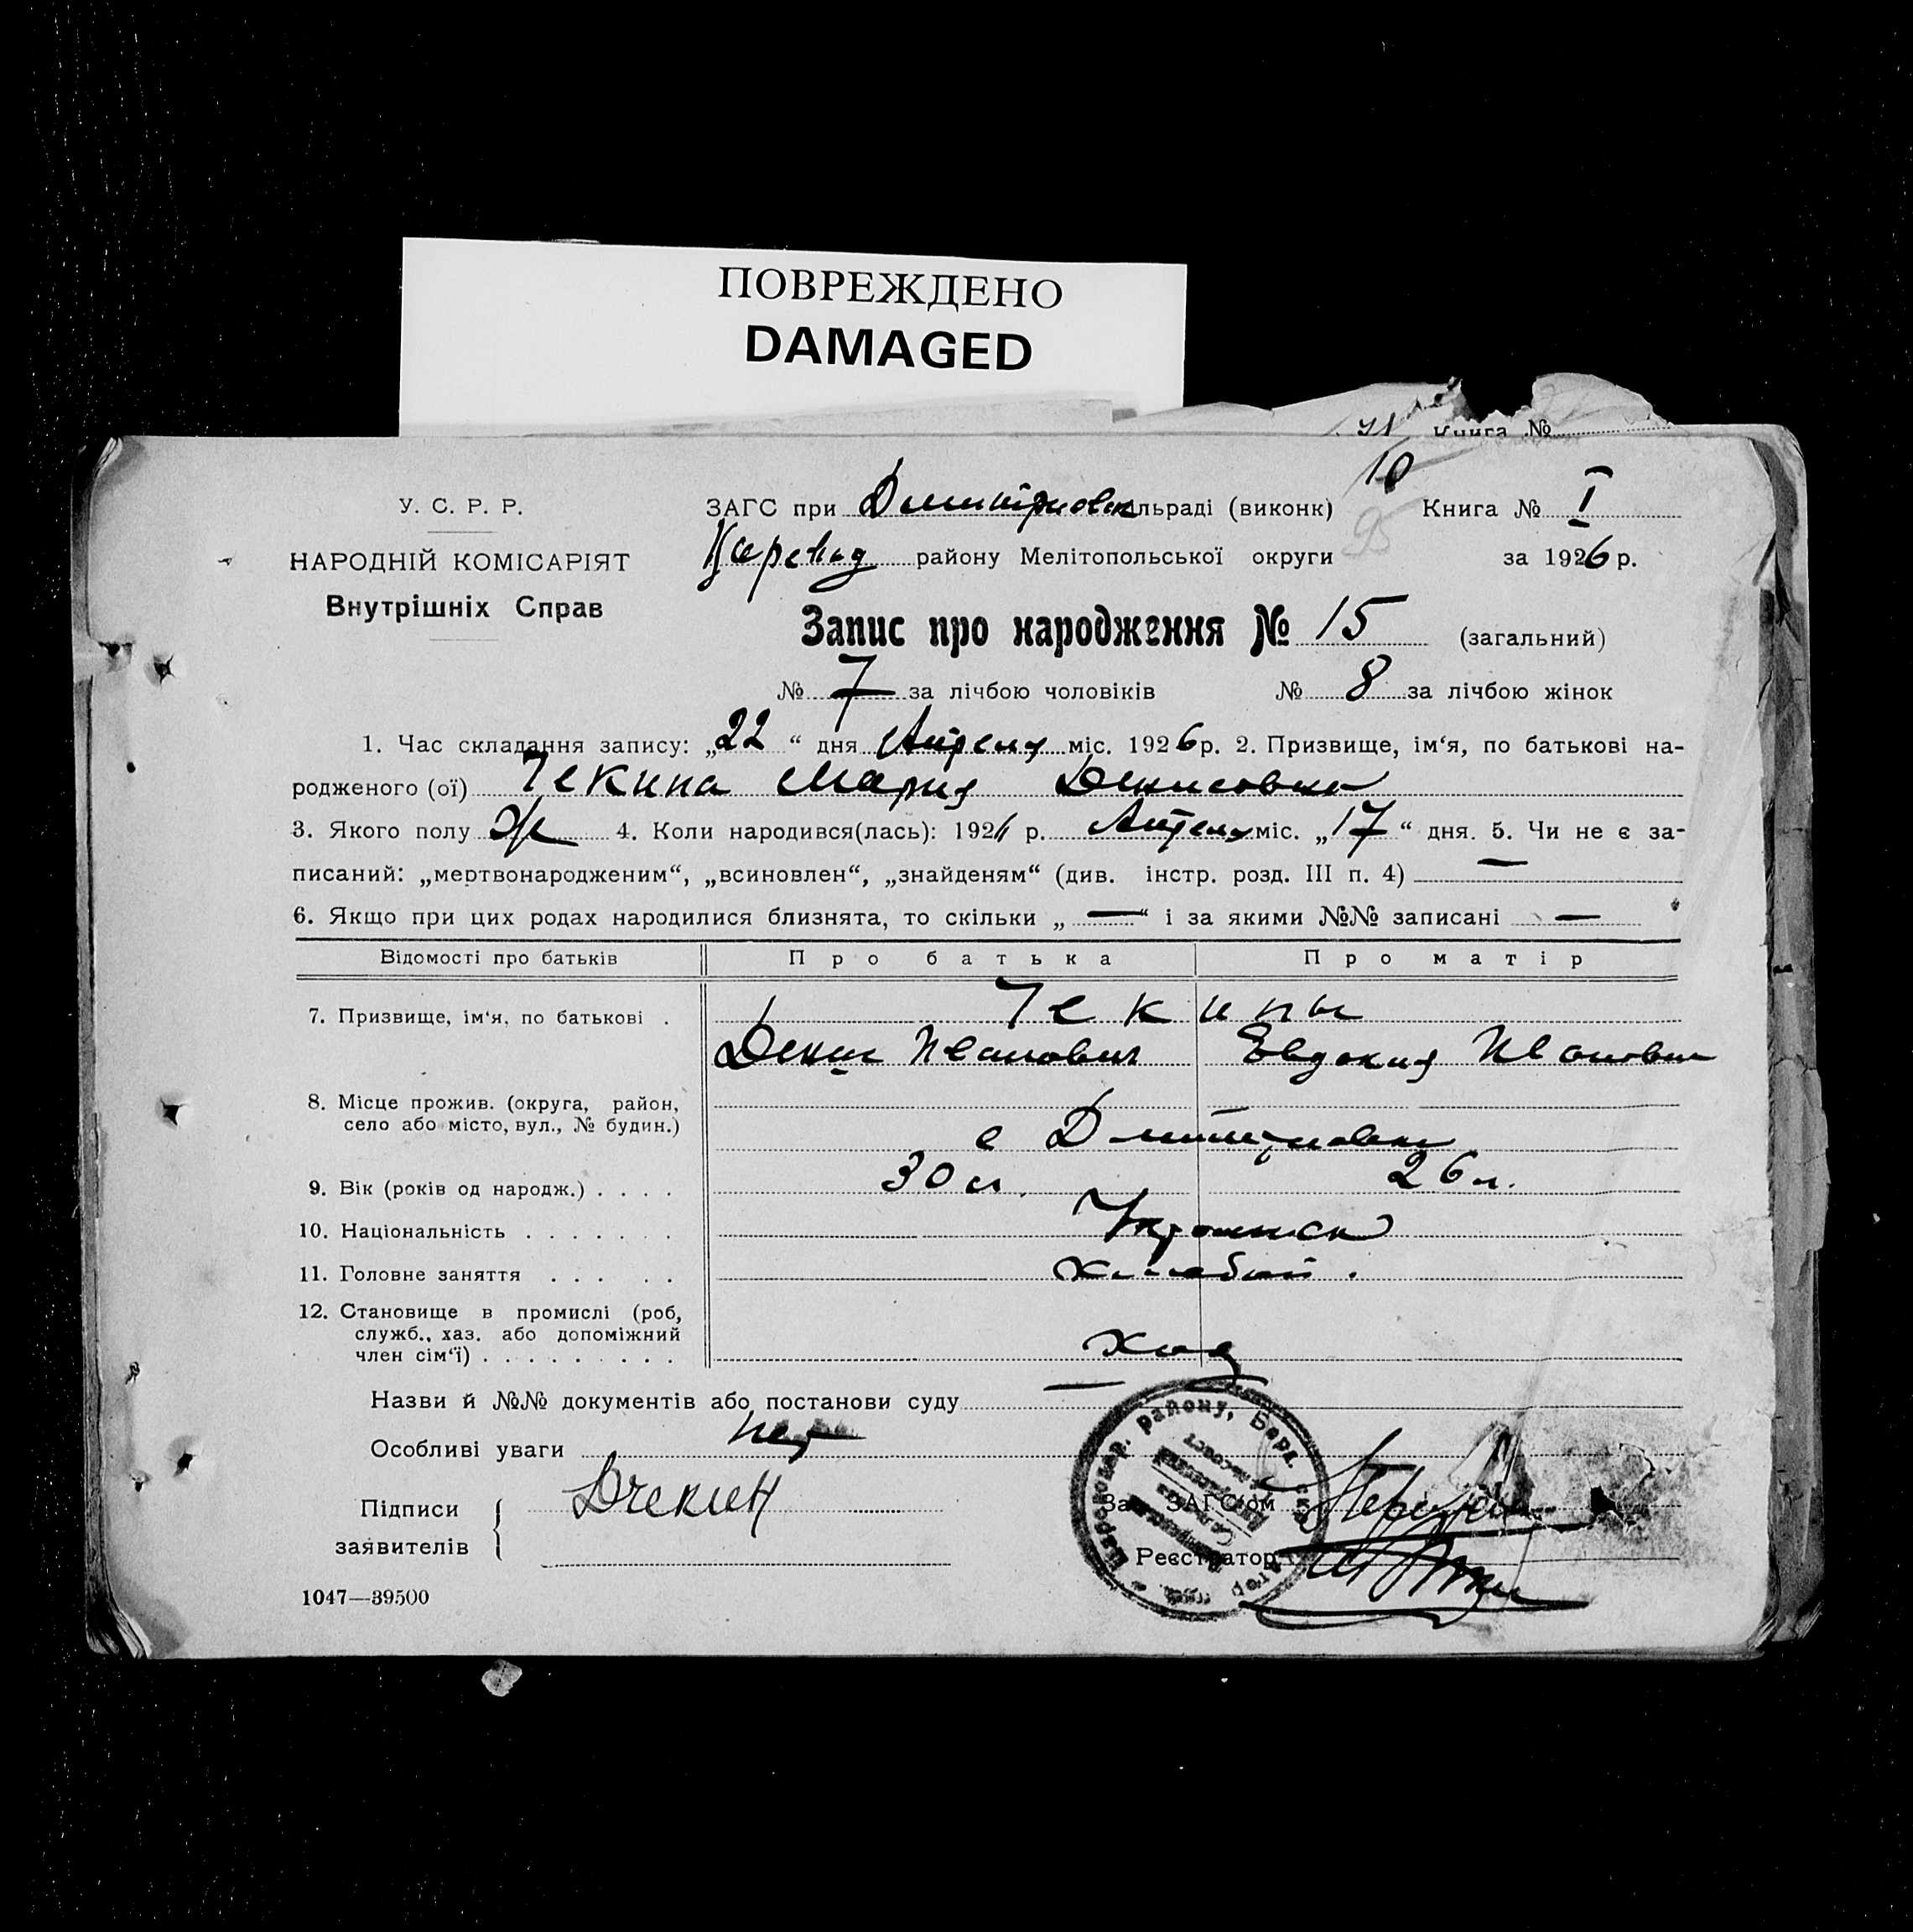 ПОВРЕЖДЕНО
DAMAGED
Книга №
10
У. С. Р. Р.
ЗАГС при Димитровск льраді (виконк) Книга № I
95
Царевод району Мелітопольської округи за 1926 р.
НАРОДНІЙ КОМІСАРІЯТ
Внутрішніх Справ
Запис про народження № 15 (загальний)
№ 7 за лічбою чоловіків № 8 за лічбою жінок
1. Час складання запису: „22“ дня Апреля міс. 1926 р. 2. Призвище, ім‘я, по батькові на-
родженого (ої) Чекина Мария Денисовна
3. Якого полу Ж 4. Коли народився(лась): 192 р. Апреля міс. „17“ дня. 5. Чи не є за-
писаний: „мертвонародженим“, „всиновлен“, „знайденям“ (див. інстр. розд. III п. 4) —
6. Якщо при цих родах народилися близнята, то скільки „—“ і за якими №№ записані —
Відомості про батьків Про батька Про матір
7. Призвище, ім‘я, по батькові . Чекины
Денис Иванович Евдокия Ивановн
8. Місце прожив. (округа, район,
село або місто, вул., № будин.) с Димитровки
9. Вік (років од народж.) . . . . 30 л. 26 л.
10. Національність . . . . . . . Украинск
11. Головне заняття . . . . . хлебоп.
12. Становище в промислі (роб,
служб., хаз. або допоміжний
член сім‘ї) . . . . . . . . . Хоз
Назви й №№ документів або постанови суду —
Особливі уваги нет
Підписи
заявителів
ДЧекин
Зав. ЗАГС‘ом
Реєстратор
району, Берд.
1047—39500